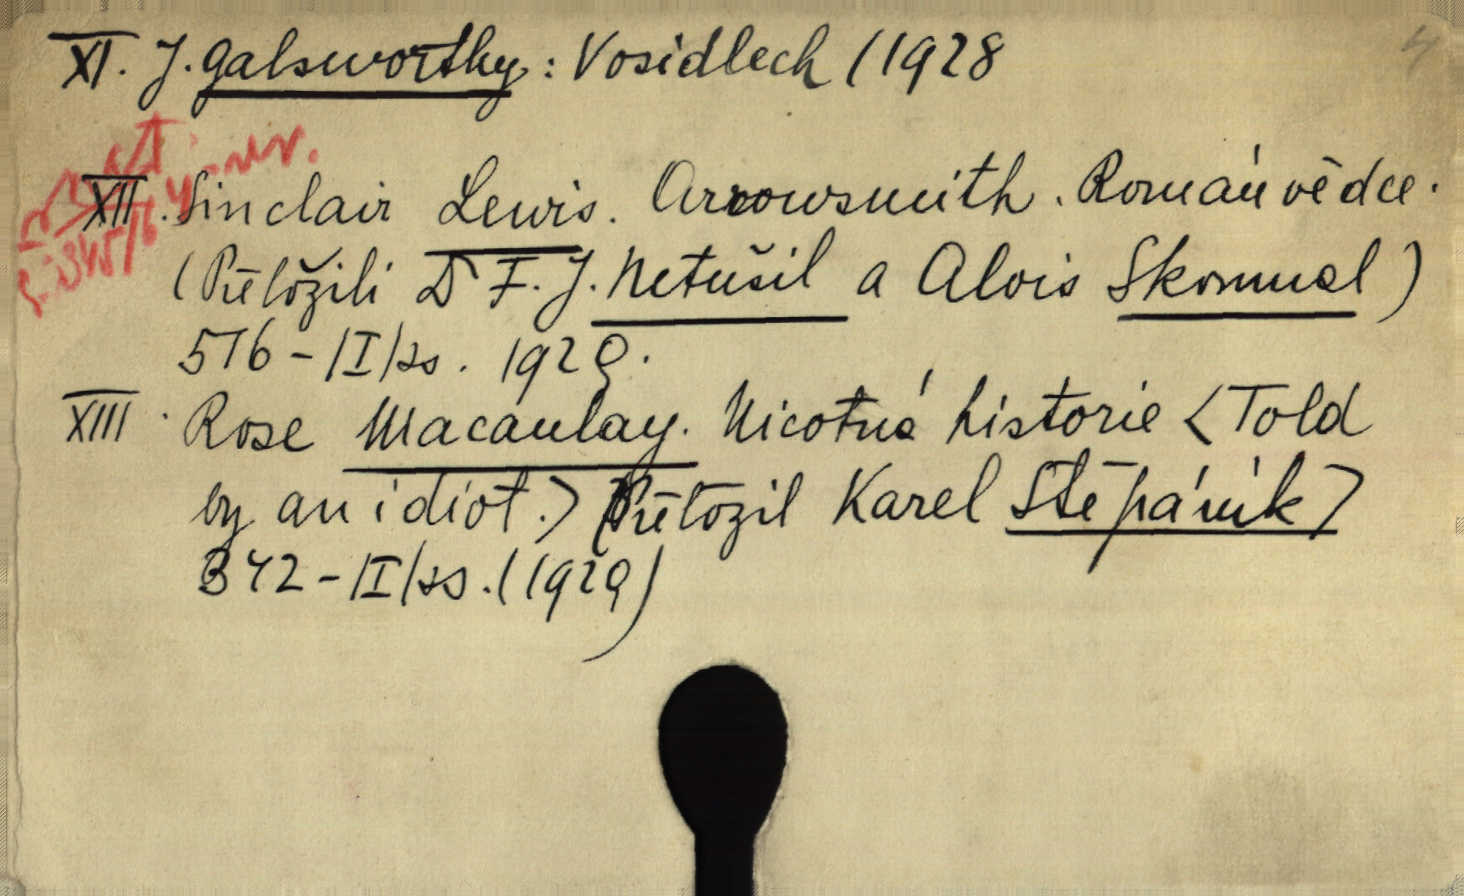 XI. J. Galsworthy: V osidlech (1928
XII. Sinclair Lewis. Arrowsmith. Román vědce.
(Přeložili Dr F. J. Netušil a Alois Skoumal)
516-/I/ss. 1929.
XIII. Rose Macaulay. Nicotná historie <Told
by an idiot.> (Přeložil Karel Štěpáník)
342-/I/ss. (1929)